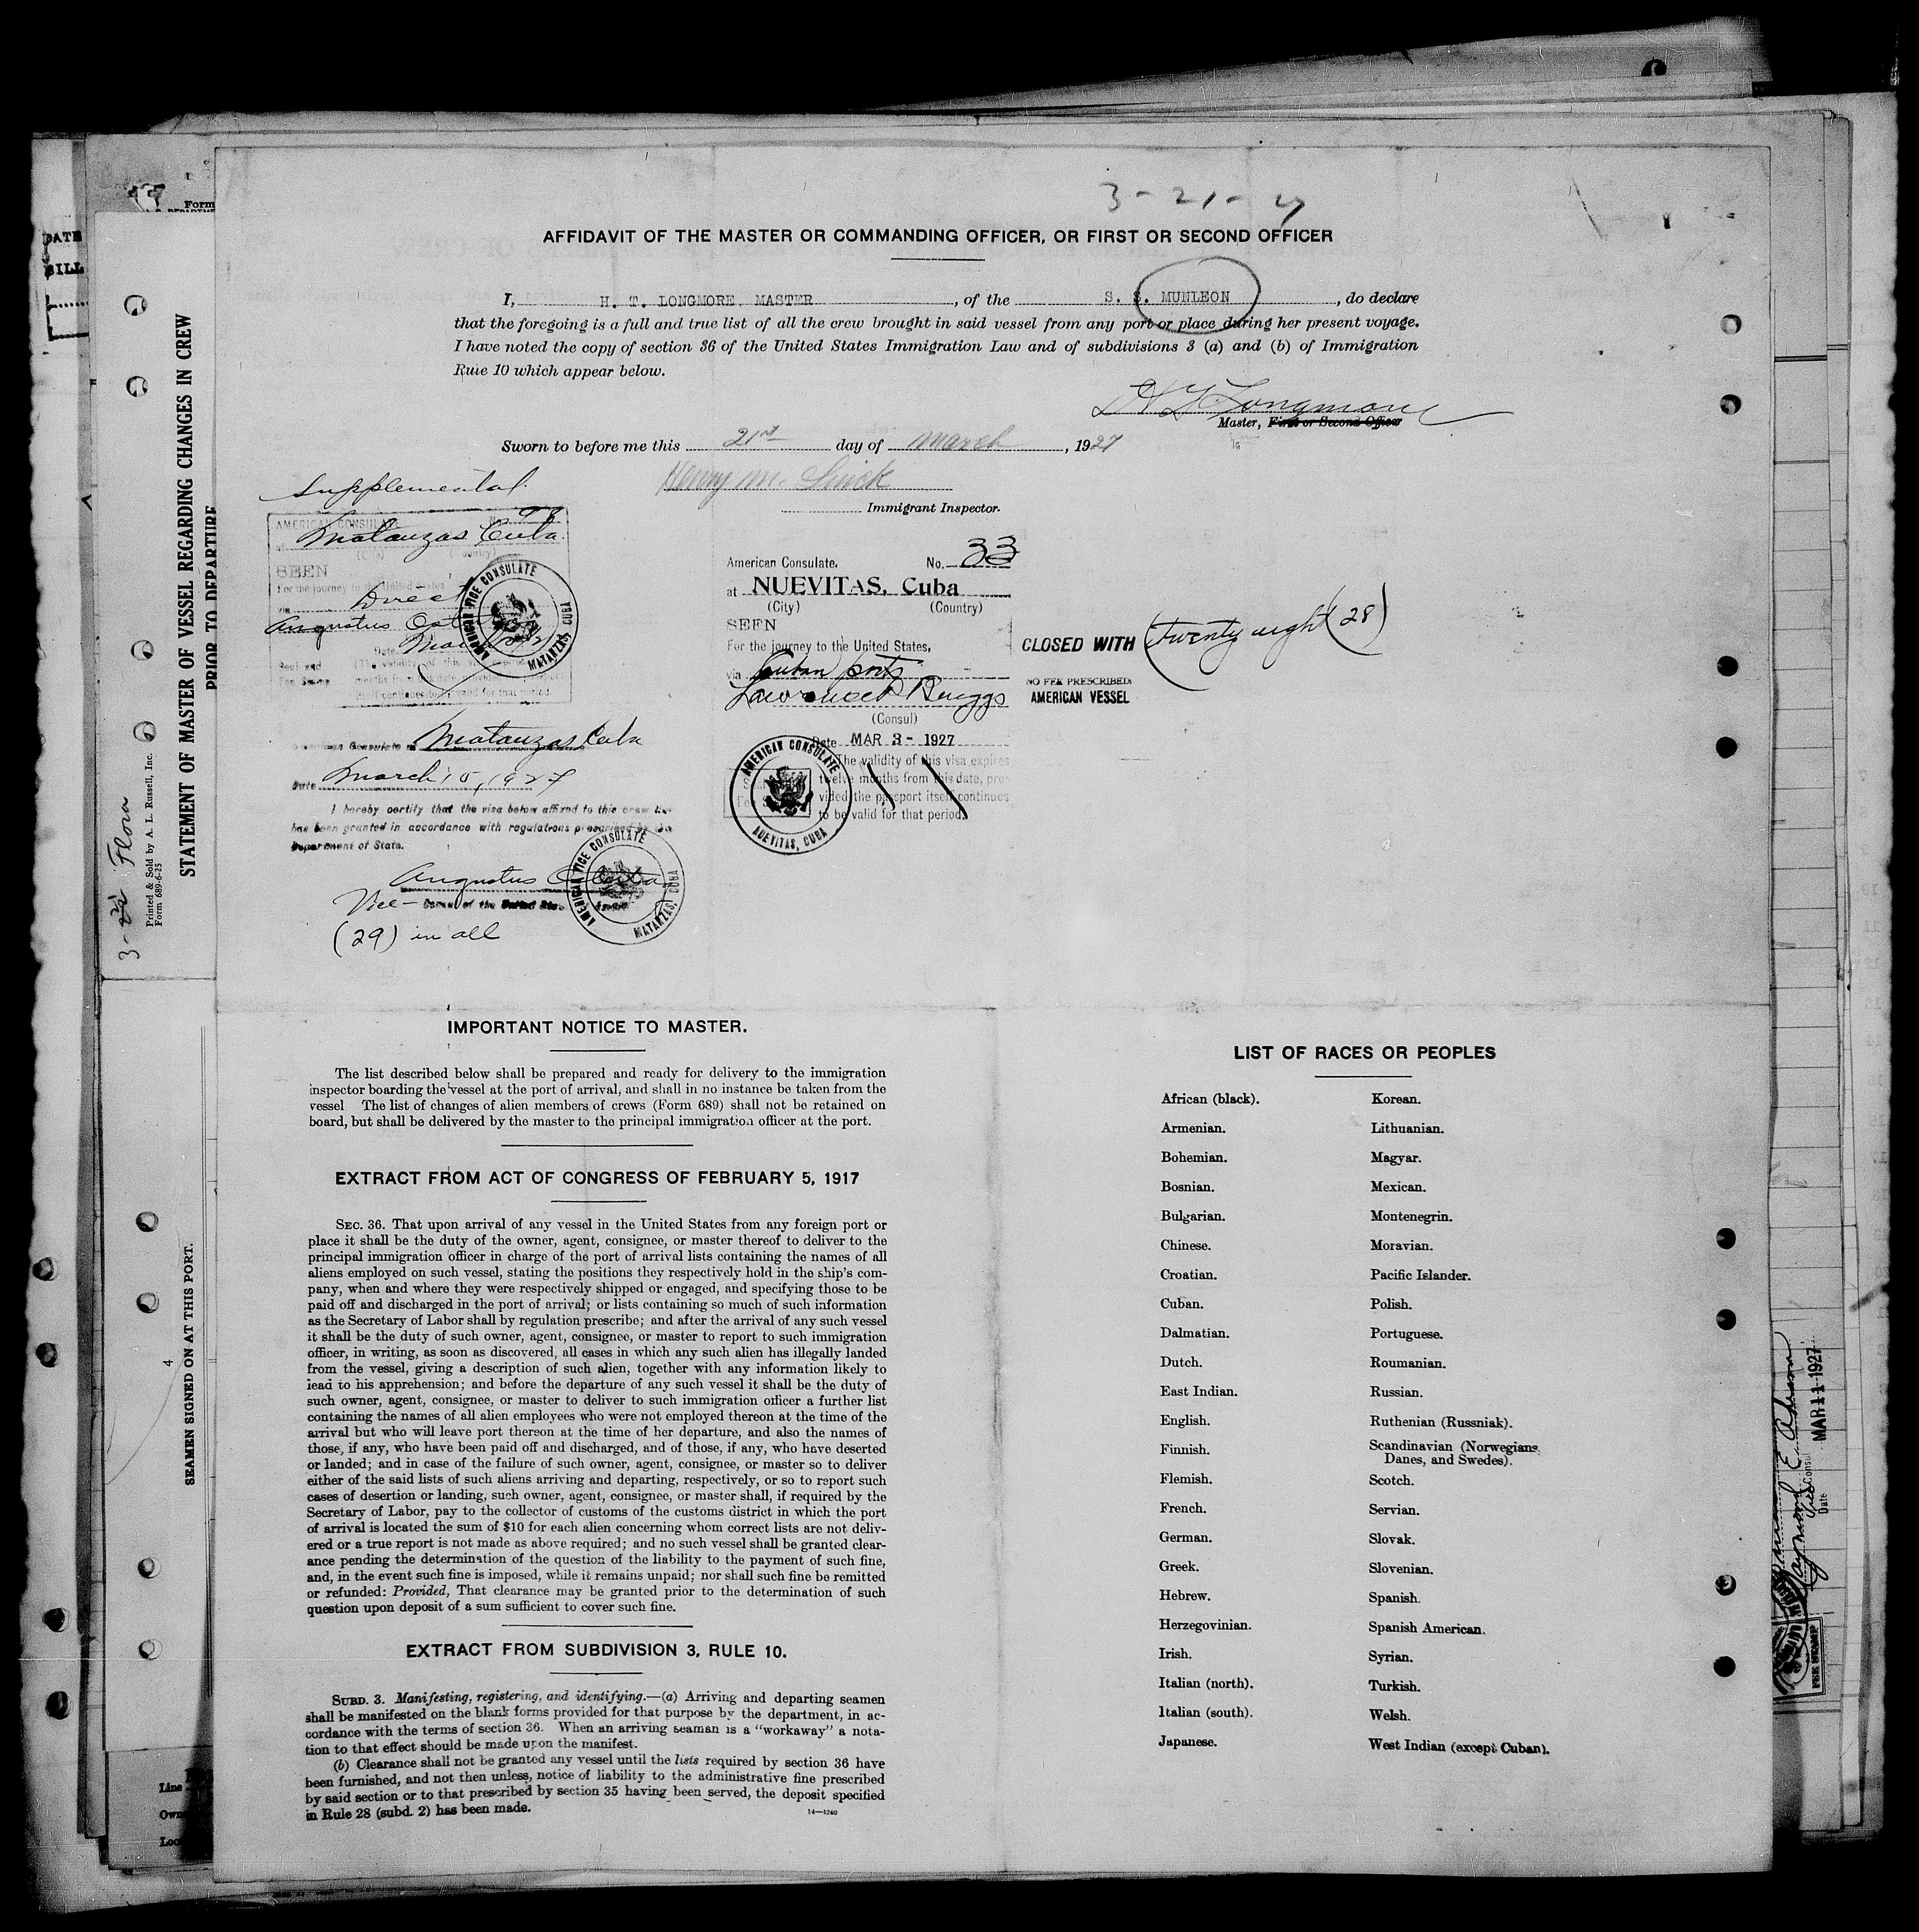 3-21-27
AFFIDAVIT OF THE MASTER OR COMMANDING OFFICER, OR FIRST OR SECOND OFFICER
I, H. T. LONGMORE, MASTER, of the S. S. MUNLEON, do declare
that the foregoing is a full and true list of all the crew brought in said vessel from any port or place during her present voyage.
I have noted the copy of section 36 of the United States Immigration Law and of subdivisions 3 (a) and (b) of Immigration
Rule 10 which appear below.
H T Longmore
Master, First or Second Officer
Sworn to before me this 21st day of March, 1927
Henry M.
Immigrant Inspector.
Supplemental
AMERICAN CONSULATE
Matanzas Cuba
SEEN
For the journey to the United States
via Direct
Augustus
AMERICAN VICE CONSULATE
MATANZAS, CUBA
American Consulate at Matanzas, Cuba
Date March 15, 1927
I hereby certify that the visa below affixed to this crew list
has been granted in accordance with regulations prescribed by the
Department of State.
Augustus
Vice-Consul of the United States
(29) in all
AMERICAN VICE CONSULATE
MATANZAS, CUBA
American Consulate, No. 33
at NUEVITAS, Cuba
(City) (Country)
SEEN
For the journey to the United States,
via Cuban ports
Lawrence P Briggs
(Consul)
Date MAR 3 - 1927
The validity of this visa expires
twelve months from this date, pro-
vided the passport itself continues
to be valid for that period.
AMERICAN CONSULATE
NUEVITAS, CUBA
CLOSED WITH (twenty eight (28)
NO FEE PRESCRIBED
AMERICAN VESSEL
IMPORTANT NOTICE TO MASTER.
The list described below shall be prepared and ready for delivery to the immigration
inspector boarding the vessel at the port of arrival, and shall in no instance be taken from the
vessel The list of changes of alien members of crews (Form 689) shall not be retained on
board, but shall be delivered by the master to the principal immigration officer at the port.
EXTRACT FROM ACT OF CONGRESS OF FEBRUARY 5, 1917
SEC. 36. That upon arrival of any vessel in the United States from any foreign port or
place it shall be the duty of the owner, agent, consignee, or master thereof to deliver to the
principal immigration officer in charge of the port of arrival lists containing the names of all
aliens employed on such vessel, stating the positions they respectively hold in the ship's com-
pany, when and where they were respectively shipped or engaged, and specifying those to be
paid off and discharged in the port of arrival; or lists containing so much of such information
as the Secretary of Labor shall by regulation prescribe; and after the arrival of any such vessel
it shall be the duty of such owner, agent, consignee, or master to report to such immigration
officer, in writing, as soon as discovered, all cases in which any such alien has illegally landed
from the vessel, giving a description of such alien, together with any information likely to
lead to his apprehension; and before the departure of any such vessel it shall be the duty of
such owner, agent, consignee, or master to deliver to such immigration officer a further list
containing the names of all alien employees who were not employed thereon at the time of the
arrival but who will leave port thereon at the time of her departure, and also the names of
those, if any, who have been paid off and discharged, and of those, if any, who have deserted
or landed; and in case of the failure of such owner, agent, consignee, or master so to deliver
either of the said lists of such aliens arriving and departing, respectively, or so to report such
cases of desertion or landing, such owner, agent, consignee, or master shall, if required by the
Secretary of Labor, pay to the collector of customs of the customs district in which the port
of arrival is located the sum of $10 for each alien concerning whom correct lists are not deliv-
ered or a true report is not made as above required; and no such vessel shall be granted clear-
ance pending the determination of the question of the liability to the payment of such fine,
and, in the event such fine is imposed, while it remains unpaid; nor shall such fine be remitted
or refunded: Provided, That clearance may be granted prior to the determination of such
question upon deposit of a sum sufficient to cover such fine.
EXTRACT FROM SUBDIVISION 3, RULE 10.
SUBD. 3. Manifesting, registering, and identifying.—(a) Arriving and departing seamen
shall be manifested on the blank forms provided for that purpose by the department, in ac-
cordance with the terms of section 36. When an arriving seaman is a "workaway" a nota-
tion to that effect should be made upon the manifest.
(b) Clearance shall not be granted any vessel until the lists required by section 36 have
been furnished, and not then unless, notice of liability to the administrative fine prescribed
by said section or to that prescribed by section 35 having been served, the deposit specified
in Rule 28 (subd. 2) has been made.
14—1240
LIST OF RACES OR PEOPLES
African (black).
Armenian.
Bohemian.
Bosnian.
Bulgarian.
Chinese.
Croatian.
Cuban.
Dalmatian.
Dutch.
East Indian.
English.
Finnish.
Flemish.
French.
German.
Greek.
Hebrew.
Herzegovinian.
Irish.
Italian (north).
Italian (south).
Japanese.
Korean.
Lithuanian.
Magyar.
Mexican.
Montenegrin.
Moravian.
Pacific Islander.
Polish.
Portuguese.
Roumanian.
Russian.
Ruthenian (Russniak).
Scandinavian (Norwegians,
Danes, and Swedes).
Scotch.
Servian.
Slovak.
Slovenian.
Spanish.
Spanish American.
Syrian.
Turkish.
Welsh.
West Indian (except Cuban).
Form
STATEMENT OF MASTER OF VESSEL REGARDING CHANGES IN CREW
PRIOR TO DEPARTURE
Printed & Sold by A. L. Russell, Inc.
Form 689-6-25
SEAMEN SIGNED ON AT THIS PORT.
4
Line
Own
Loc
Vice Consul
Date MAR 11 1927
FEE STAMP